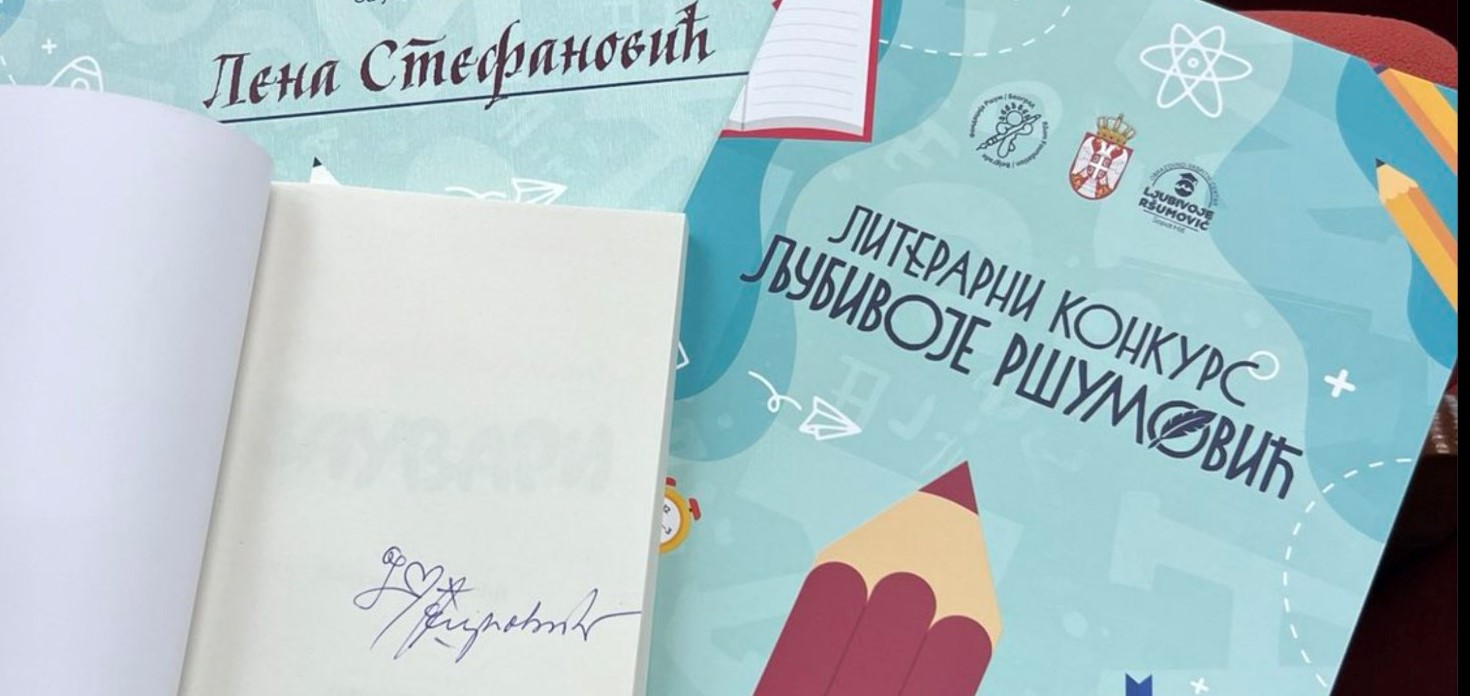 Лена Стефановић
LJUBIVOJE
RŠUMOVIĆ
ЛИТЕРАРНИ КОНКУРС
ЉУБИВОЈЕ РШУМОВИЋ